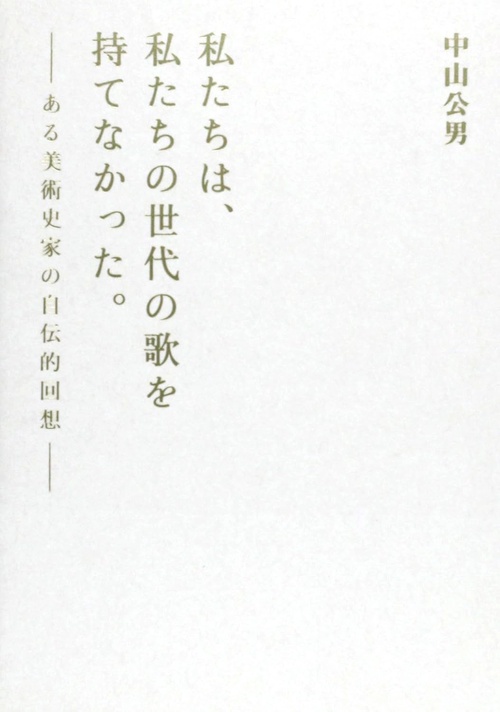 中山公男
私たちは、
私たちの世代の歌を
持てなかった。
——ある美術史家の自伝的回想——